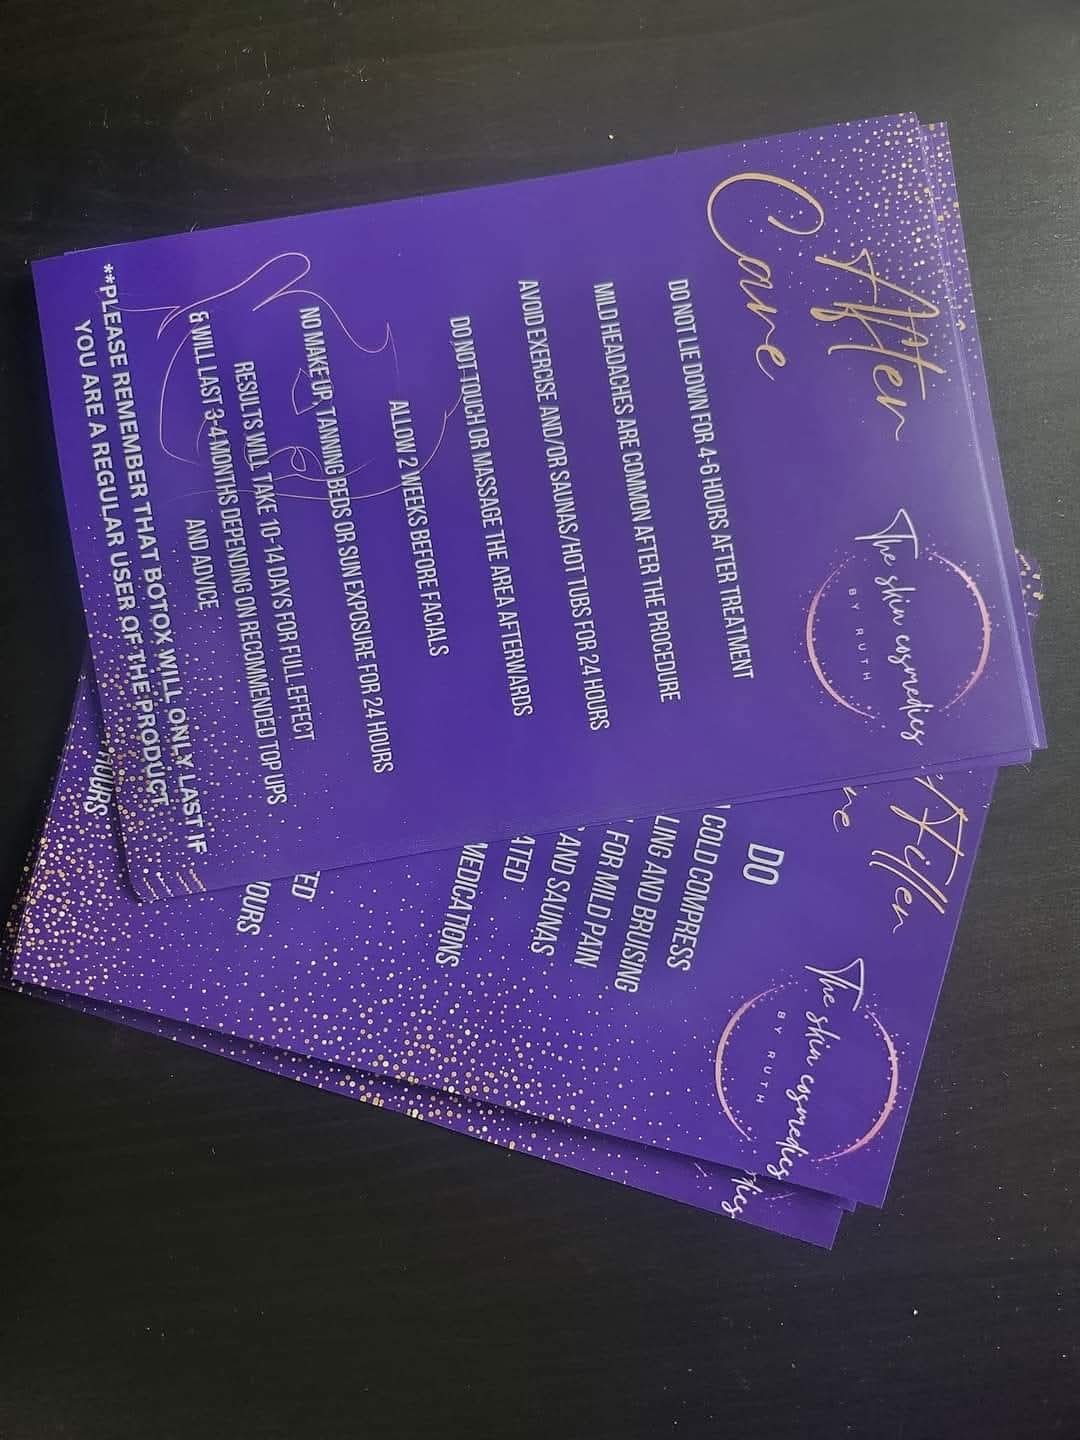 After
Care
The skin cosmedics
BY RUTH
DO NOT LIE DOWN FOR 4-6 HOURS AFTER TREATMENT
MILD HEADACHES ARE COMMON AFTER THE PROCEDURE
AVOID EXERCISE AND/OR SAUNAS/HOT TUBS FOR 24 HOURS
DO NOT TOUCH OR MASSAGE THE AREA AFTERWARDS
ALLOW 2 WEEKS BEFORE FACIALS
NO MAKE UP, TANNING BEDS OR SUN EXPOSURE FOR 24 HOURS
RESULTS WILL TAKE 10-14 DAYS FOR FULL EFFECT
& WILL LAST 3-4 MONTHS DEPENDING ON RECOMMENDED TOP UPS
AND ADVICE
**PLEASE REMEMBER THAT BOTOX WILL ONLY LAST IF
YOU ARE A REGULAR USER OF THE PRODUCT
Filler
The skin cosmedics
BY RUTH
DO
COLD COMPRESS
LING AND BRUISING
FOR MILD PAIN
AND SAUNAS
ATED
MEDICATIONS
TED
OURS
HOURS